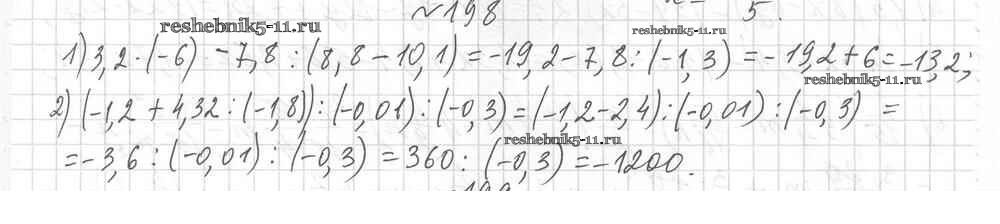 №198 5.
reshebnik5-11.ru reshebnik5-11.ru
1) 3,2 · (-6) - 7,8 : (8,8 - 10,1) = -19,2 - 7,8 : (-1,3) = -19,2 + 6 = -13,2;
reshebnik5-11.ru
2) (-1,2 + 4,32 : (-1,8)) : (-0,01) : (-0,3) = (-1,2 - 2,4) : (-0,01) : (-0,3) =
reshebnik5-11.ru
= -3,6 : (-0,01) : (-0,3) = 360 : (-0,3) = -1200.